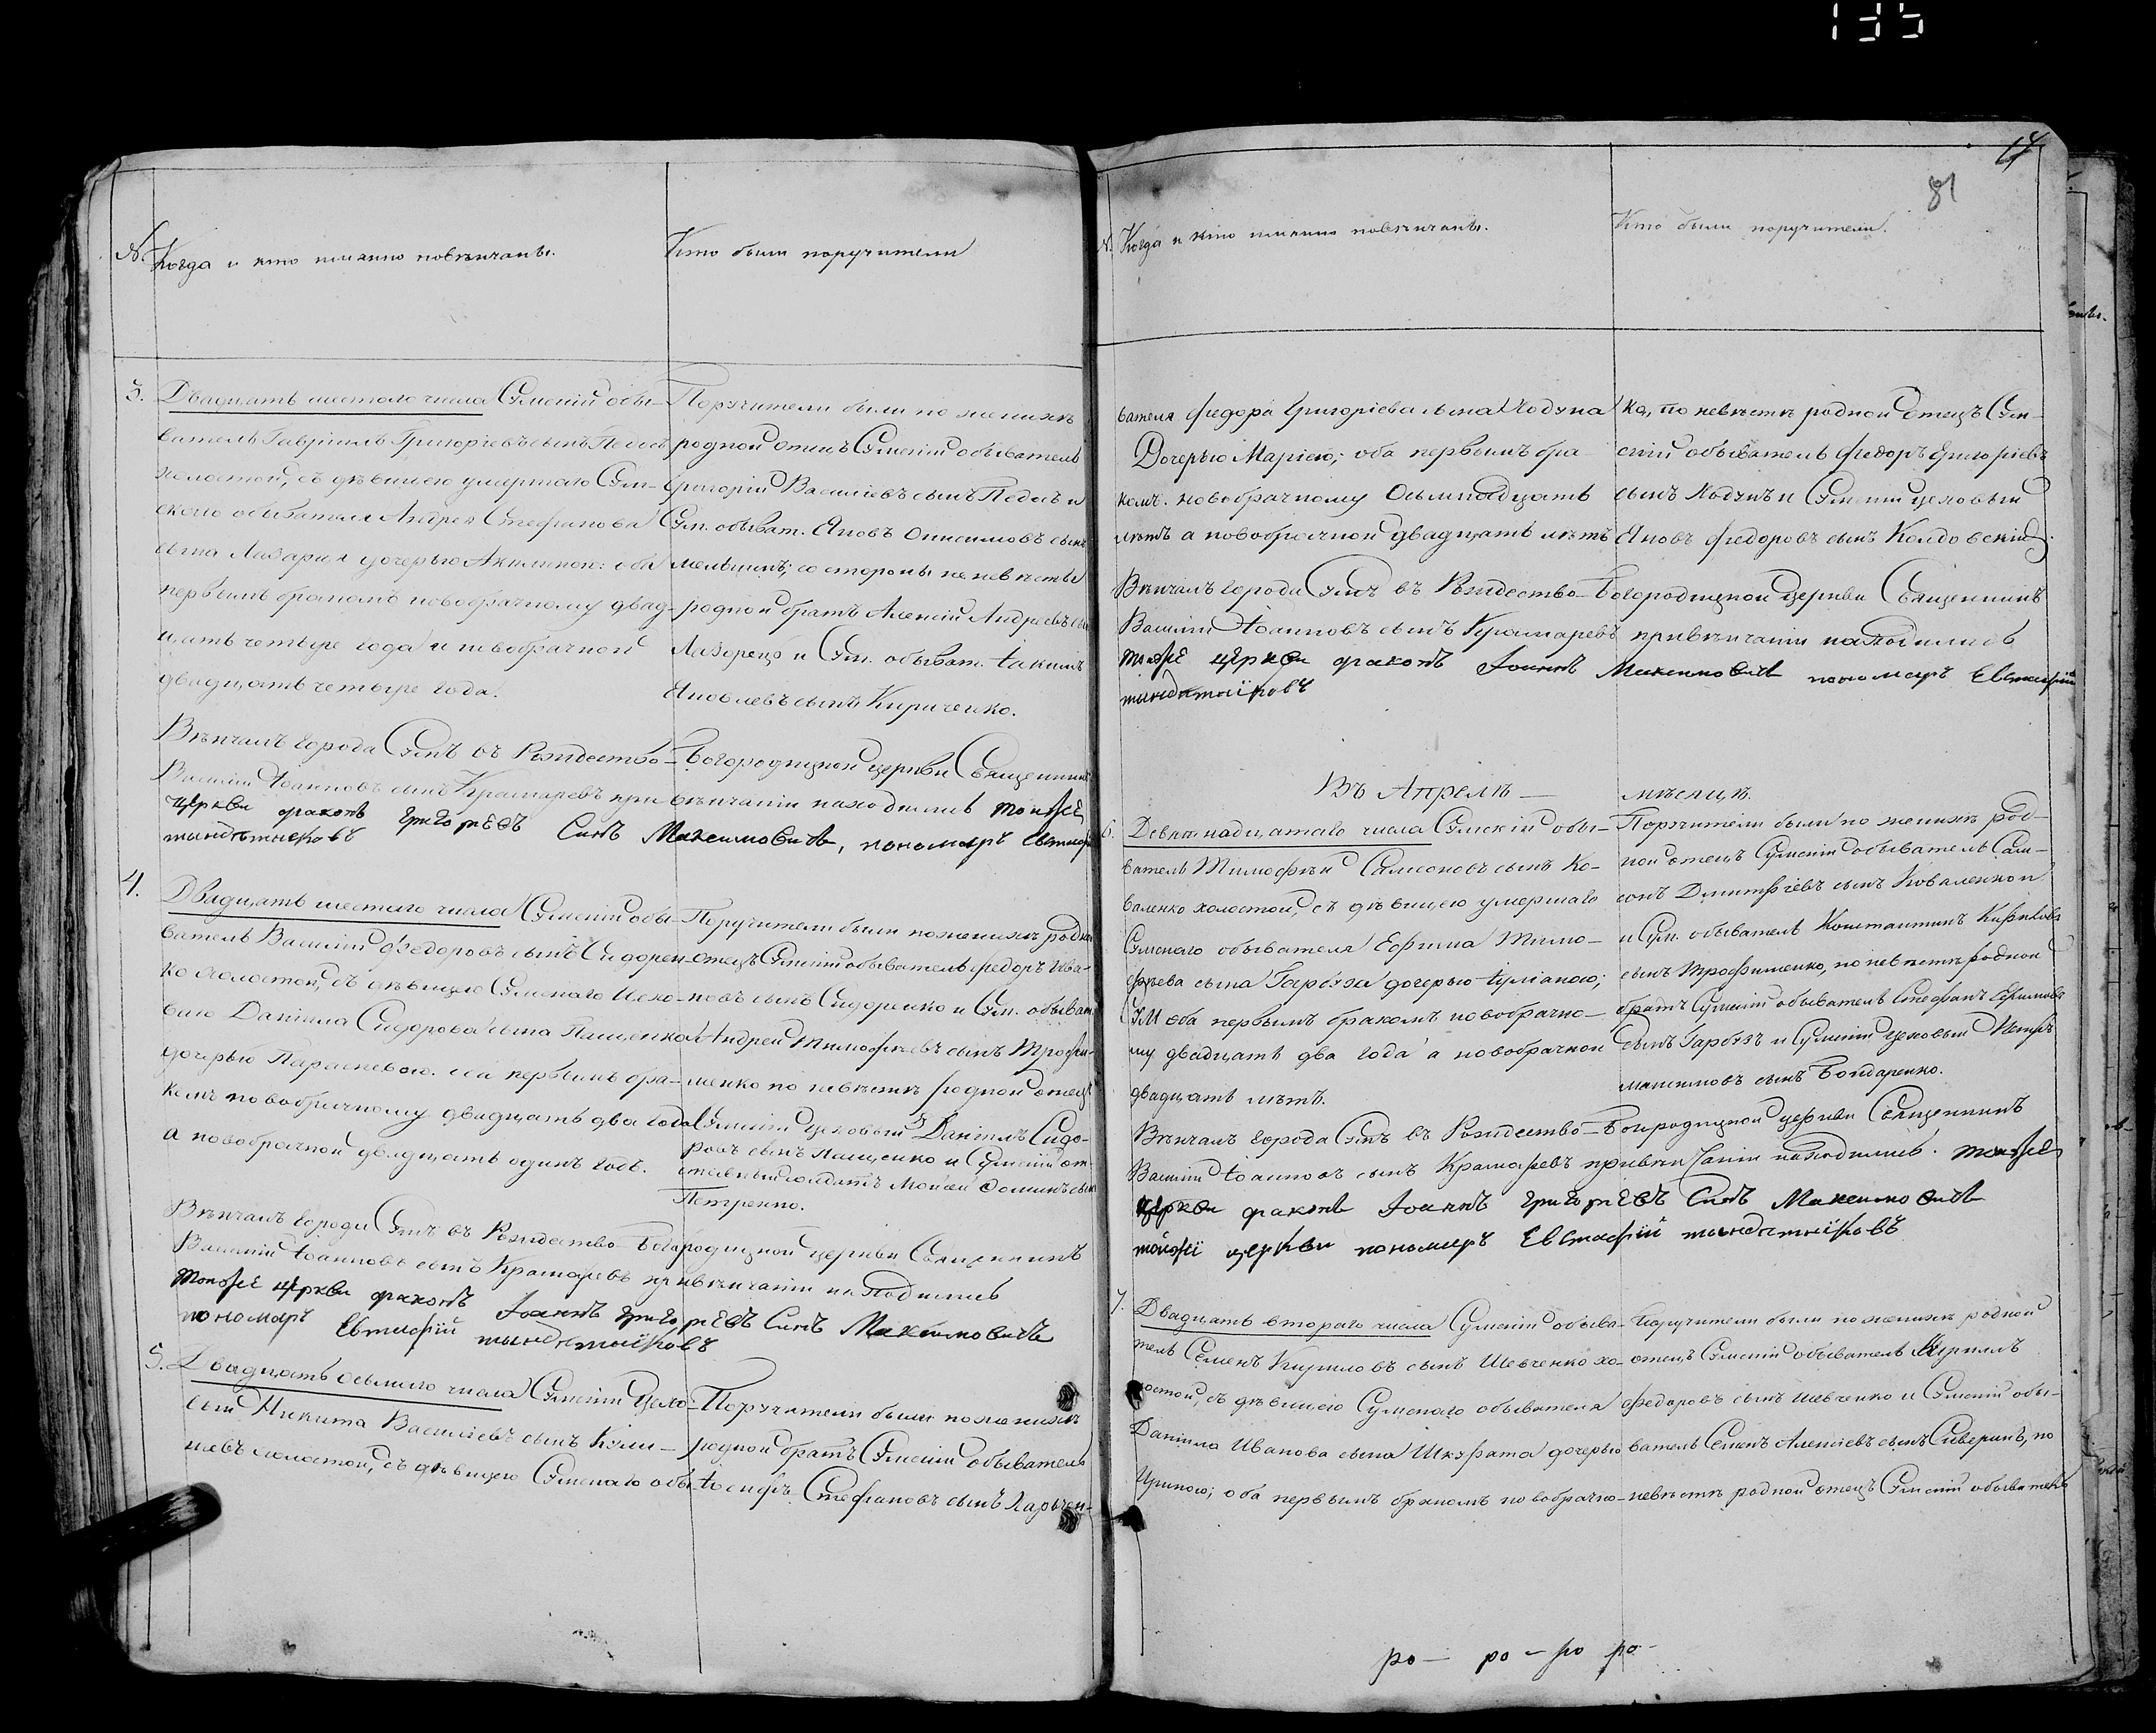 135
14
81
№ Когда и кто именно повѣнчаны.
Кто были поручители
3. Двадцать шестаго числа Сумскій обы-
ватель Гавріилъ Григорьевъ сынъ
холостой, съ дѣвицею умершаго Сум-
скаго обывателя Андрея Стефанова
сына Лазаря дочерью Акилиною: оба
первымъ бракомъ новобрачному двад-
цать четыре года и новобрачной
двадцать четыре года.
Поручители были по женихѣ
родной отецъ Сумскій обыватель
Григорій Василіевъ сынъ и
Сум. обыват. Яковъ Онисимовъ сынъ
со стороны невѣсты
родной братъ Алексій Андреевъ сынъ
и Сум. обыват.
Яковлевъ сынъ Кириченко.
Вѣнчалъ города Сумъ въ Рождество-Богородицкой церкви Священникъ
Василій Іоанновъ сынъ Крамаревъ при вѣнчаніи находились тояже
церкви диаконъ Григориевъ Синъ Максимовичъ, пономаръ
4. Двадцать шестаго числа Сумскій обы-
ватель Василій Федоровъ сынъ Сидорен-
ко холостой, съ дѣвицею Сумскаго Цехо-
ваго Даніила Сидорова сына Пащенка
дочерью Параскевою. оба первымъ бра-
комъ новобрачному двадцать два года
а новобрачной двадцать одинъ годъ.
Поручители были по женихѣ родной
отецъ Сумскій обыватель Федоръ Ива-
новъ сынъ Сидоренко и Сум. обыват.
Андрей Тимофѣевъ сынъ Трофи-
менко по невѣстѣ родной отецъ
Сумскій Цеховый Даніилъ Сидо-
ровъ сынъ Пащенко и Сумскій от-
ставный солдатъ Мойсей сынъ
Петренко.
Вѣнчалъ города Сумъ въ Рождество-Богородицкой церкви Священникъ
Василій Іоанновъ сынъ Крамаревъ при вѣнчаніи находились
тояже церкви диаконъ Іоаннъ Григориевъ Синъ Максимовичъ
пономаръ Евстафій
5. Двадцать осьмаго числа Сумскій Цехо-
вый Никита Василіевъ сынъ
холостой, съ дѣвицею Сумскаго обы-
Поручители были по женихѣ
родной братъ Сумскій обыватель
Іосифъ Стефановъ сынъ Харчен-
№ Когда и кто именно повѣнчаны.
Кто были поручители.
вателя Федора Григоріева сына
Дочерью Маріею; оба первымъ бра-
комъ. новобрачному Осьмнадцать
лѣтъ а новобрачной двадцать лѣтъ
ко, по невѣстѣ родной отецъ Сум-
скій обыватель Федоръ Григоріевъ
сынъ и Сумскій цеховый
Яковъ Федоровъ сынъ
Вѣнчалъ города Сумъ въ Рождество-Богородицкой церкви Священникъ
Василій Іоанновъ сынъ Крамаревъ при вѣнчаніи находились
тояже церкви диаконъ Іоаннъ Максимовичъ пономаръ Евстафій
Въ Апрелѣ — мѣсяцѣ.
6. Девятнадцатаго числа Сумскій обы-
ватель Тимофѣй Самсоновъ сынъ Ко-
валенко холостой, съ дѣвицею умершаго
Сумскаго обывателя Ефима Тимо-
фѣева сына Гарбуза дочерью Іуліаною;
оба первымъ бракомъ новобрачно-
му двадцать два года а новобрачной
двадцать лѣтъ.
Поручители были по женихѣ род-
ной отецъ Сумскій обыватель Сам-
сонъ Дмитріевъ сынъ Коваленко и
и Сум. обыватель Константинъ
сынъ Трофименко, по невѣстѣ родной
братъ Сумскій обыватель Стефанъ Ефимовъ
сынъ Гарбузъ и Сумскій Цеховый Петръ
Максимовъ сынъ Бондаренко.
Вѣнчалъ города Сумъ въ Рождество-Богородицкой церкви Священникъ
Василій Іоанновъ сынъ Крамаревъ при вѣнчаніи находились. тояже
церкви диаконъ Іоаннъ Григориевъ Синъ Максимовичъ
тойжеі церкви пономаръ Евстафій
7. Двадцать втораго числа Сумскій обыва-
тель Семенъ Кириловъ сынъ Шевченко хо-
лостой, съ дѣвицею Сумскаго обывателя
Даніила Иванова сына Шкурата дочерью
Ириною; оба первымъ бракомъ новобрачно-
Поручители были по женихѣ родной
отецъ Сумскій обыватель Кириллъ
Федоровъ сынъ Шевченко и Сумскій обы-
ватель Семенъ Алексіевъ сынъ Сиверинъ, по
невѣстѣ родной отецъ Сумскій обыватель
ро — ро — ро ро —